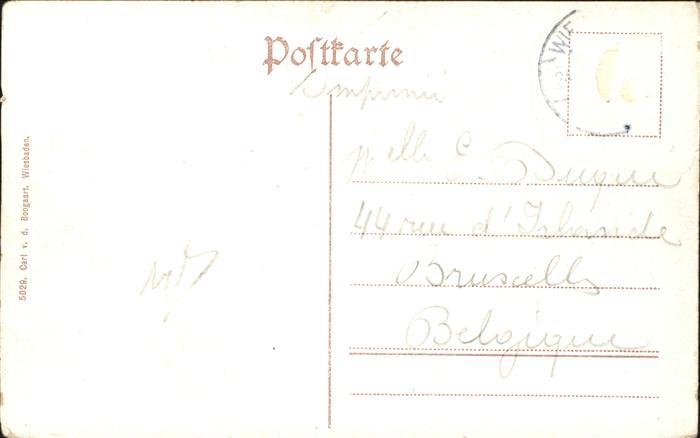 Postkarte
WIE
Imprimé
Melle E. Duqué
44 rue d'Irlande
Bruxelles
Belgique
5029. Carl v. d. Boogaart. Wiesbaden.